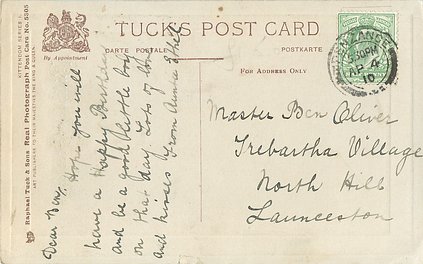 TUCK'S POST CARD
CARTE POSTALE
POSTKARTE
By Appointment
FOR ADDRESS ONLY
PENZANCE
3.30PM
AP 4
10
Raphael Tuck & Sons Real Photograph Post Card No. 5305
ART PUBLISHERS TO THEIR MAJESTIES THE KING & QUEEN
Dear Ben,
Hope you will
have a Happy Birthday
and be a good little boy
on that day Lots of love
and kisses from Auntie Ethel
Master Ben Oliver
Trebartha Village
North Hill
Launceston